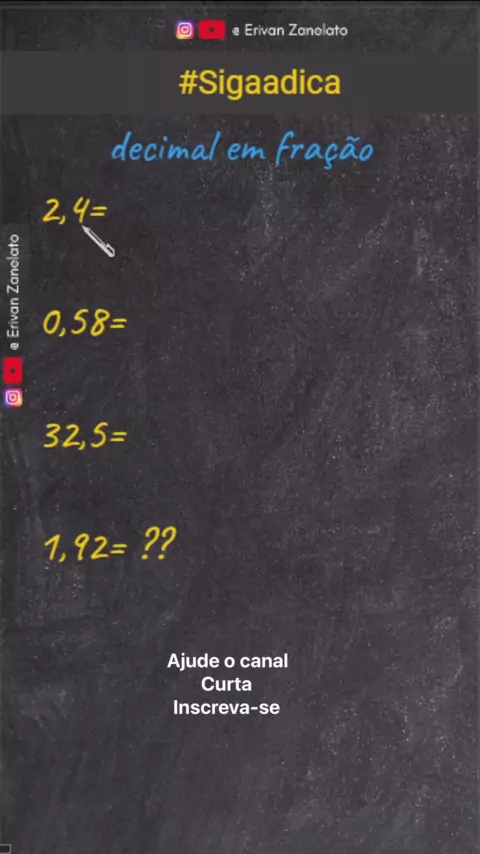 @ Erivan Zanelato
#Sigaadica
decimal em fração
2,4=
@ Erivan Zanelato
0,58=
32,5=
1,92= ??
Ajude o canal
Curta
Inscreva-se